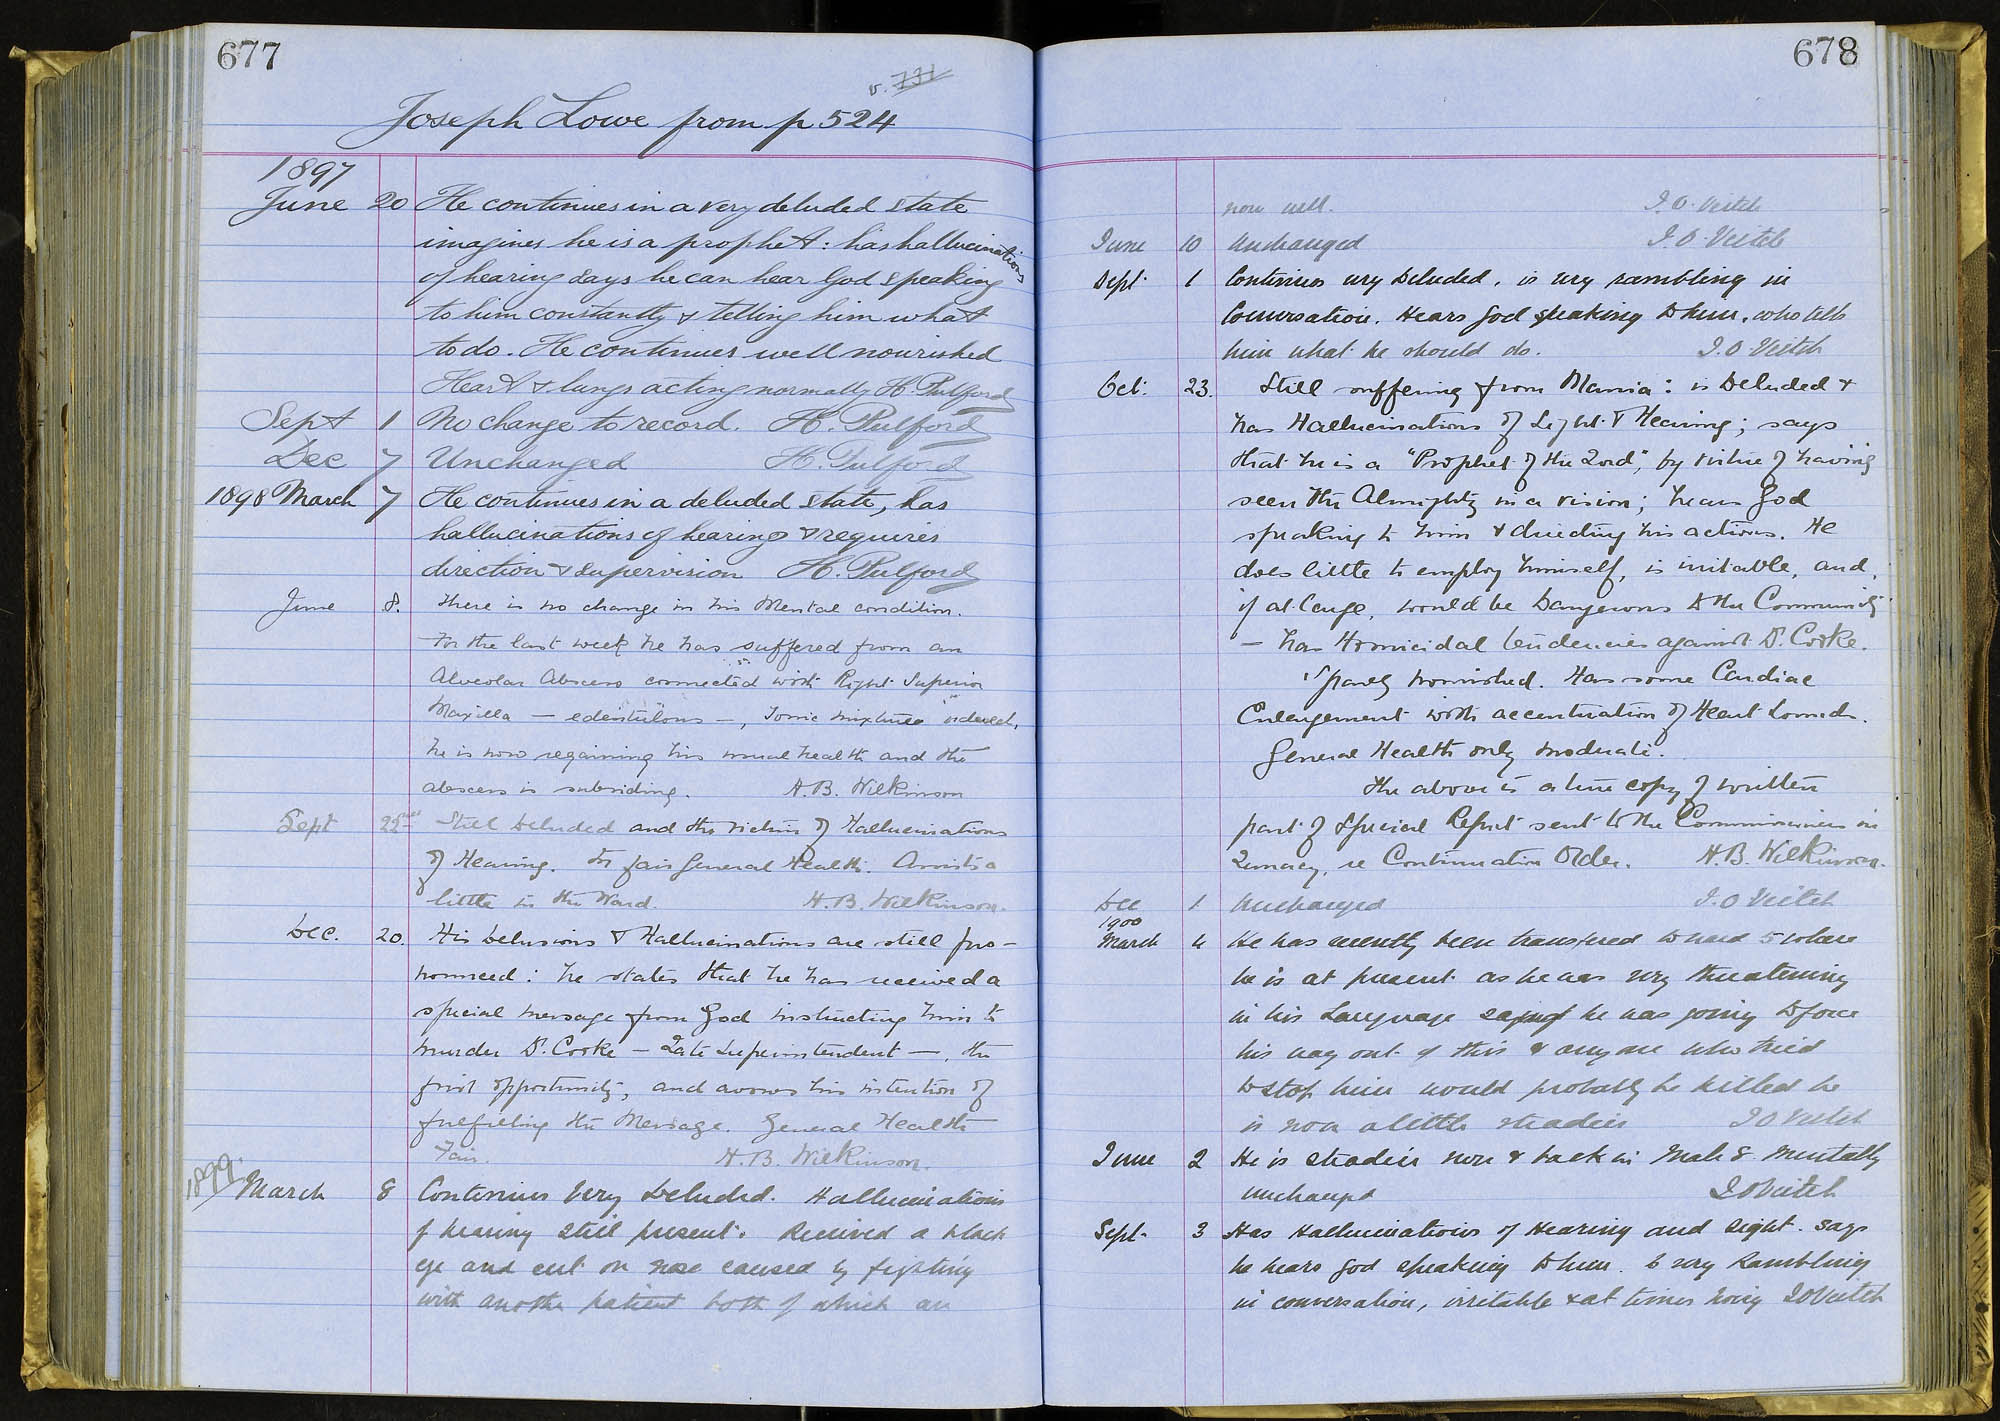 677
v. 731
Joseph Lowe from p 524
1897
June 20 He continues in a very deluded state
imagines he is a prophet: has hallucinations
of hearing says he can hear God speaking
to him constantly & telling him what
to do. He continues well nourished
Heart & lungs acting normally H. Pulford
Sept 1 No change to record. H. Pulford
Dec 7 Unchanged H. Pulford
1898 March 7 He continues in a deluded state, has
hallucinations of hearing & requires
direction & supervision H. Pulford
June 8. There is no change in his Mental condition.
For the last week he has suffered from an
Alveolar Abscess connected with Right Superior
Maxilla — edentulous —, Tonic mixture ordered,
he is now regaining his usual health and the
abscess is subsiding. H.B. Wilkinson
Sept 22nd Still Deluded and the victim of Hallucinations
of Hearing. In fair General Health. Assists a
little in the Ward. H.B. Wilkinson.
Dec. 20. His Delusions & Hallucinations are still pro-
nounced: he states that he has received a
special message from God instructing him to
murder Dr. Cooke — Late Superintendent —, the
first opportunity, and avows his intention of
fulfilling the Message. General Health
Fair. H.B. Wilkinson.
1899. March 8 Continues Very Deluded. Hallucinations
of hearing still present. Received a black
eye and cut on nose caused by fighting
with another patient both of which are
678
now well. J.O. Veitch
June 10 Unchanged J.O. Veitch
Sept 1 Continues very Deluded. is very rambling in
Conversation. Hears God speaking to him, who tells
him what he should do. J.O. Veitch
Oct. 23. Still suffering from Mania: is Deluded &
has Hallucinations of Sight & Hearing; says
that he is a "Prophet of the Lord", by virtue of having
seen the Almighty in a vision; hears God
speaking to him & directing his actions. He
does little to employ himself, is irritable, and,
if at large, would be Dangerous to the Community
— has Homicidal tendencies against Dr. Cooke.
Sparely nourished. Has some Cardiac
Enlargement with accentuation of Heart Sounds.
General Health only moderate.
The above is a true copy of written
part of Special Report sent to the Commissioners in
Lunacy, re Continuation Order. H.B. Wilkinson.
Dec 1 Unchanged J.O Veitch
1900
March 4 He has recently been transfered to ward 5 where
he is at present as he was very threatening
in his Language saying he was going to force
his way out of this & anyone who tried
to stop him would probably be killed he
is now a little steadier J O Veitch
June 2 He is steadier now & back in Male 8. Mentally
unchanged J O Veitch
Sept 3 Has Hallucinations of Hearing and sight. says
he hears God speaking to him. Is very Rambling
in conversation, irritable & at times noisy J O Veitch